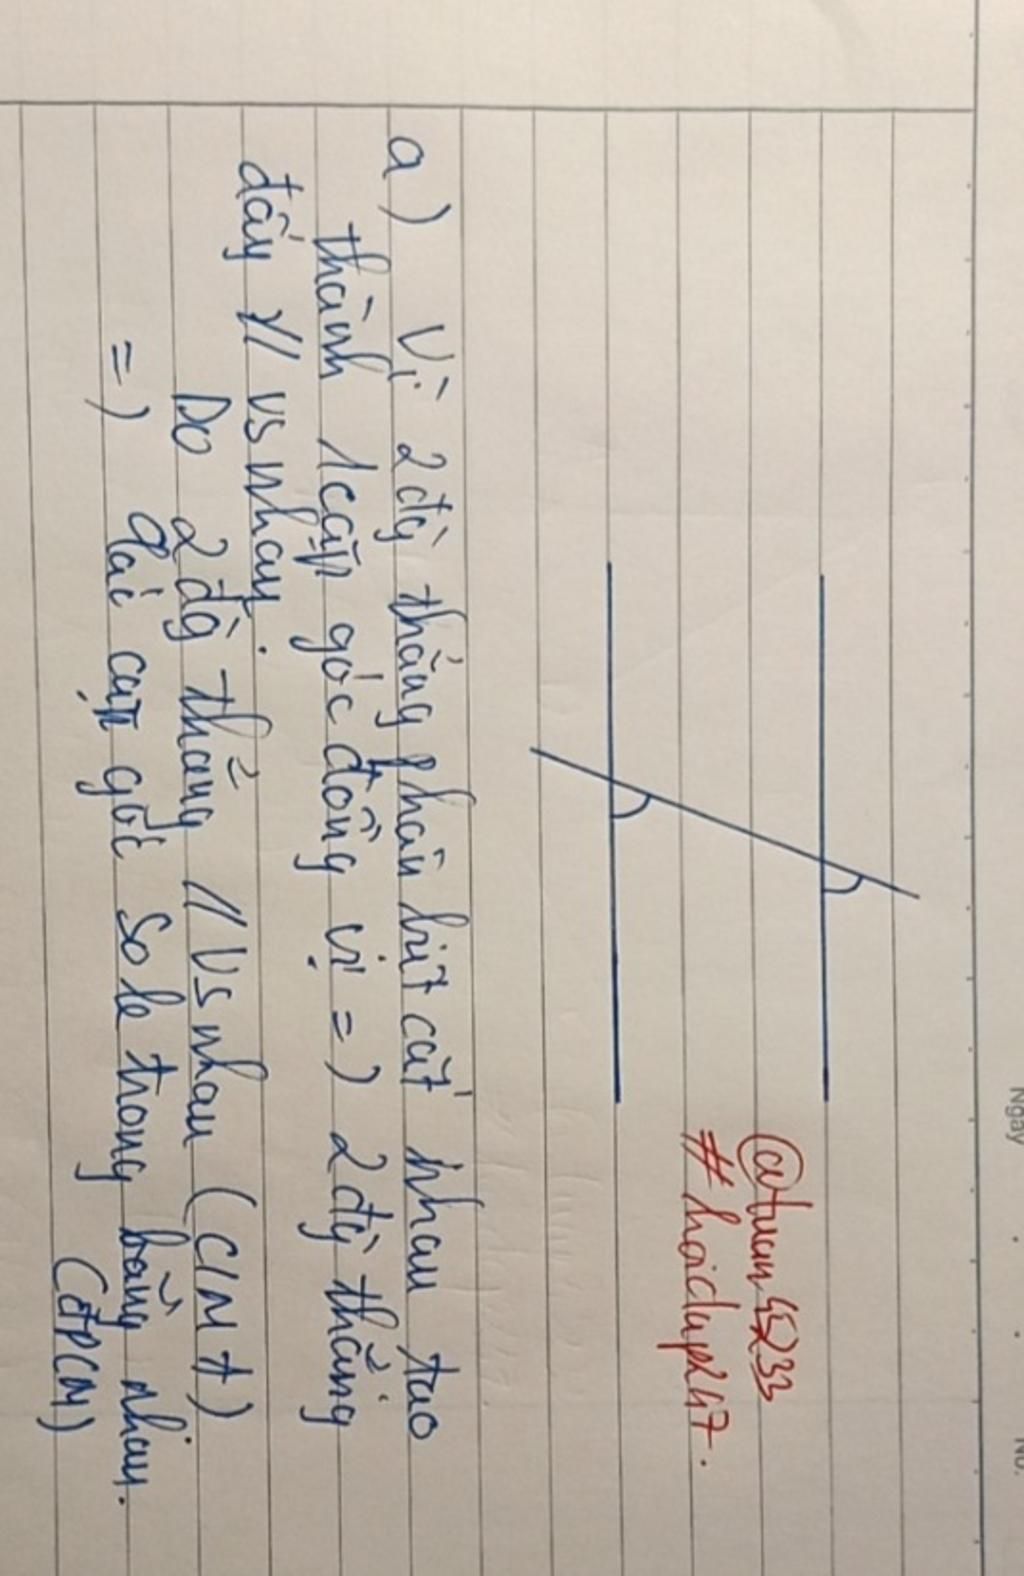 Ngày
No.
@tuan45233
#hoidap247.
a) Vì 2 đg` thẳng phân biệt cắt nhau tạo
thành 1 cặp góc đồng vị =) 2 đg` thẳng
đấy // vs nhau.
Do 2 đg` thẳng // vs nhau (CMt)
=) các cặp góc so le trong bằng nhau.
(đPCM)